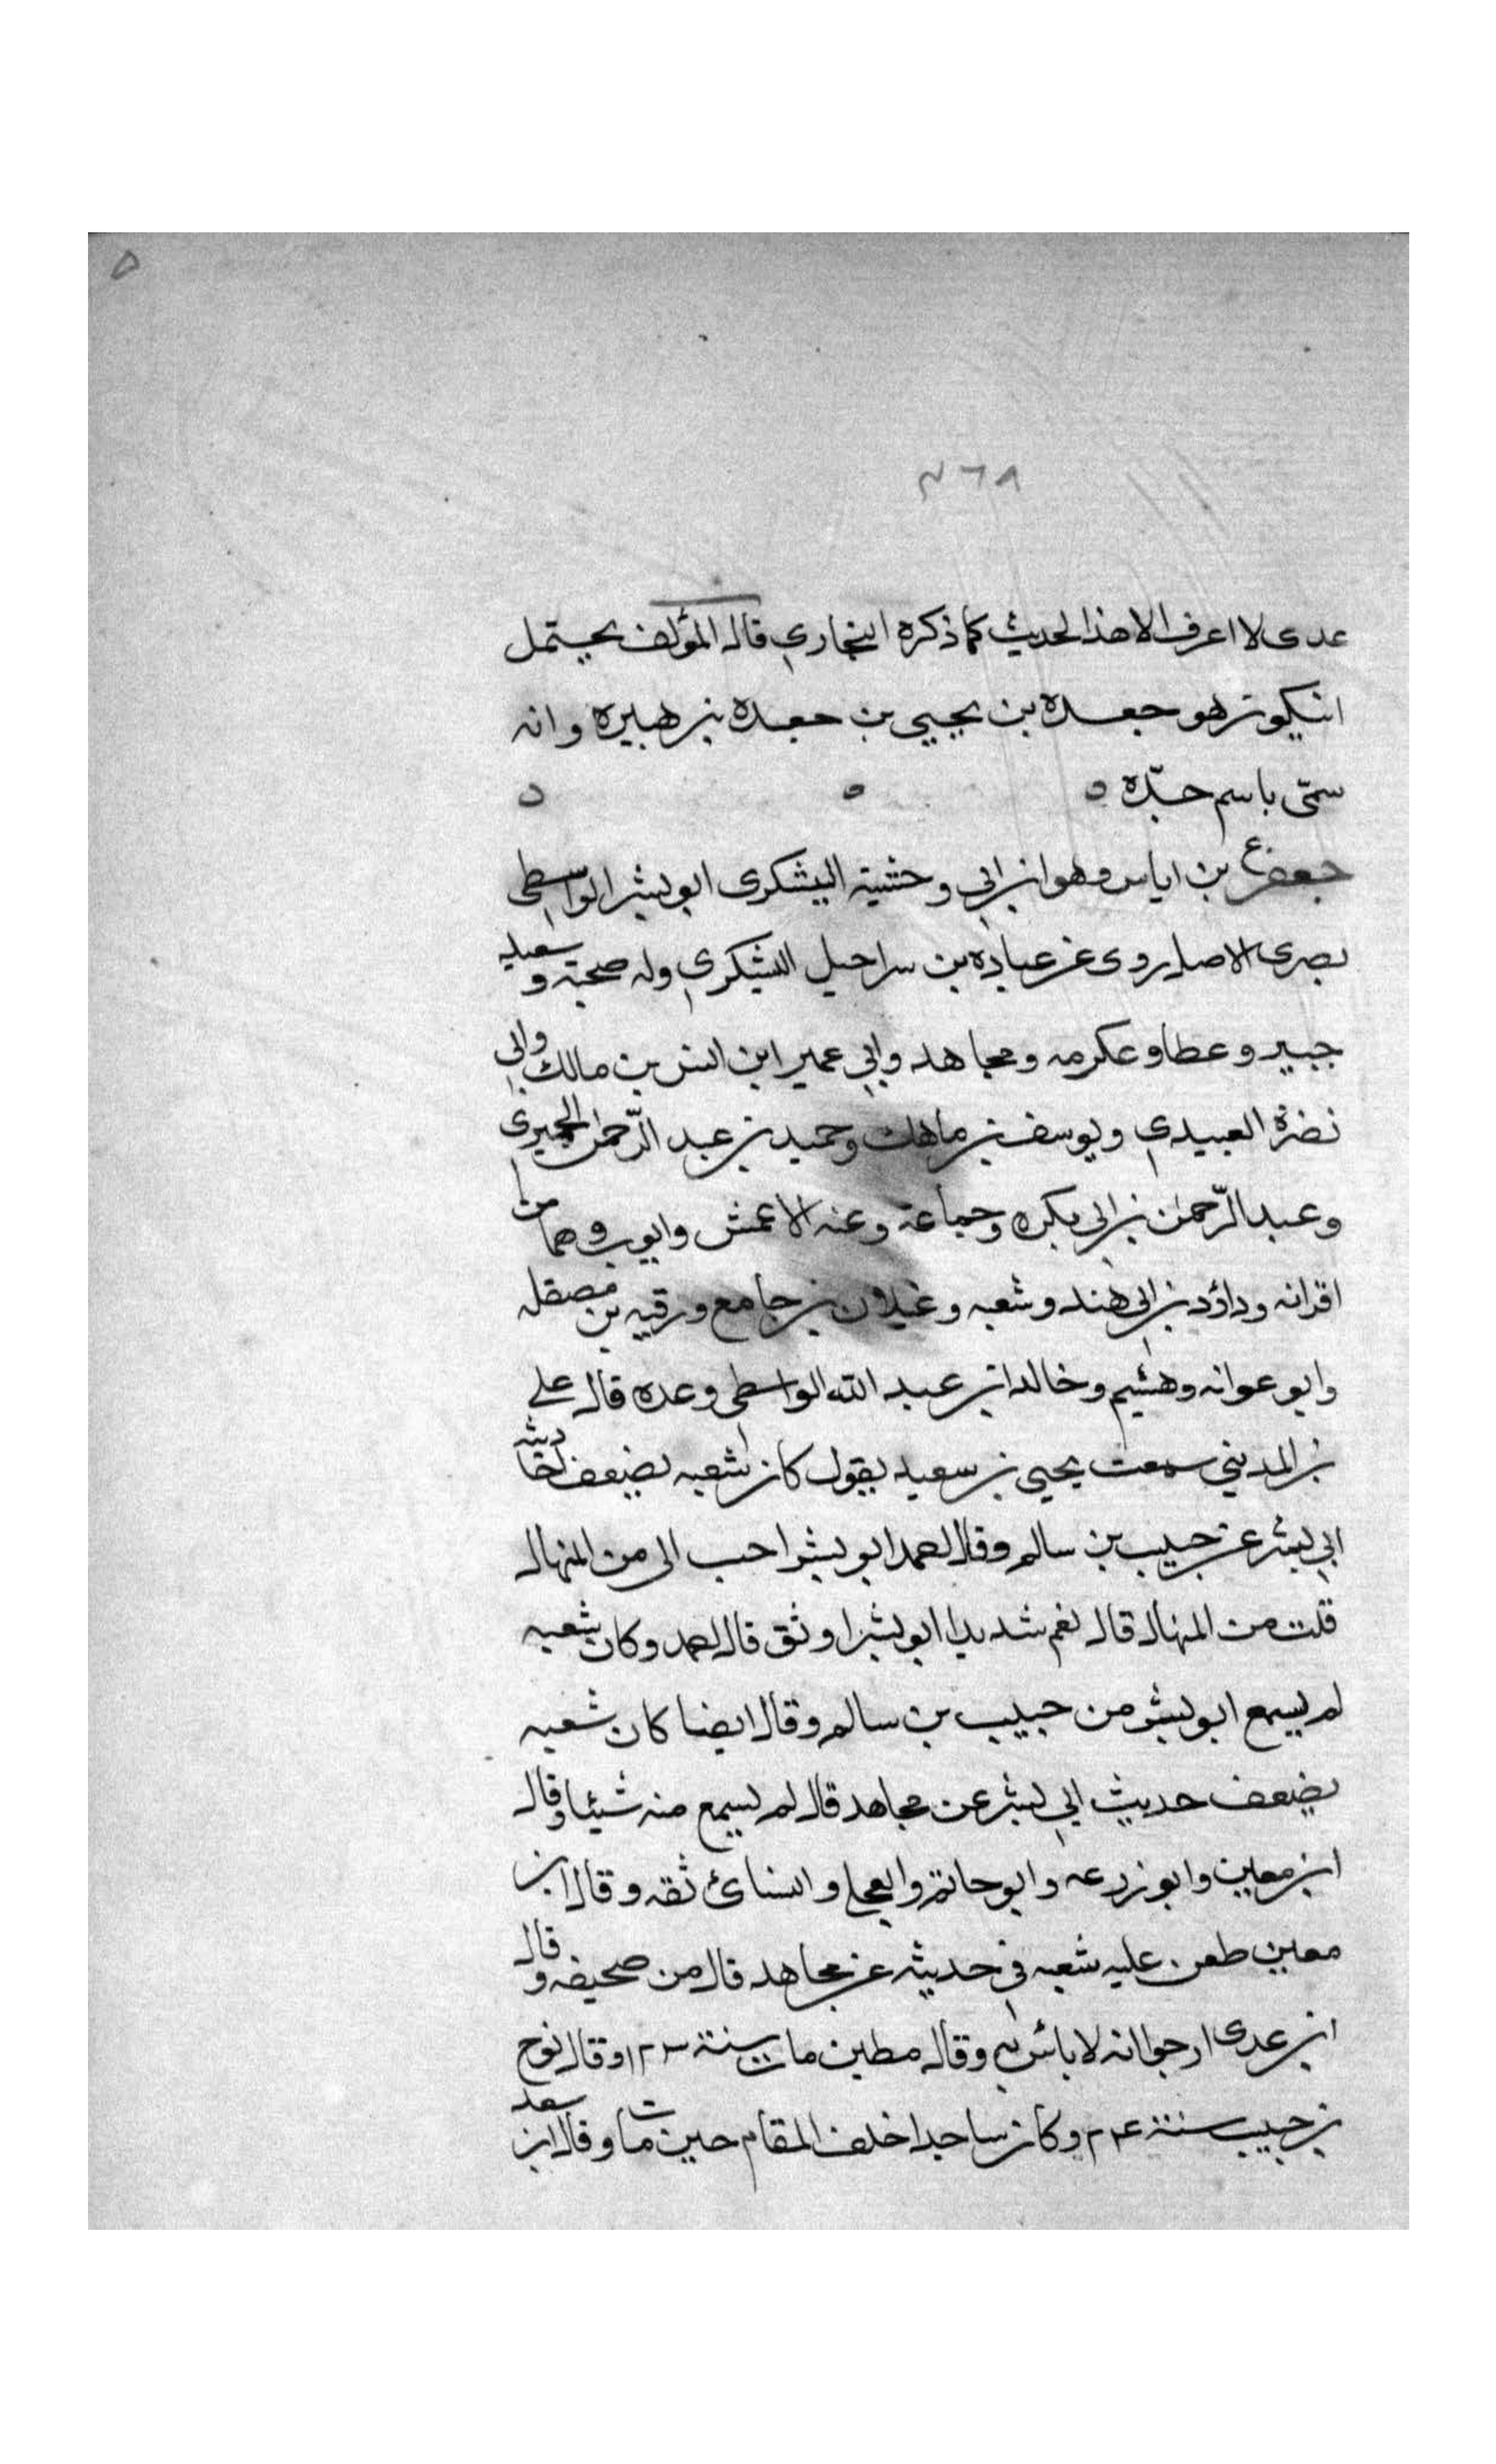 ٥
٨٦٢
عدى لا اعرف الا هذا لحديث كما ذكره البخاري قال المؤلف يحتمل
انيكون هو جعده بن يحيي بن جعده بن هبيره وانه
سمّى باسم جدّه ه ه ه
جعفر ع بن اياس وهو ابن ابي وحشية اليشكرى ابو بشر الواسطى
بصرى الاصل روى عن عباده بن سراحيل اليشكري وله صحبته و سعيد
جبير وعطا وعكرمه ومجاهد وابي عمير ابن انس بن مالك وابي
نضرة العبيدي ويوسف بن ماهك وحميد بن عبد الرّحمن الحميرى
وعبد الرّحمن بن ابى بكره وجماعة وعنه الاعمش وايوب وهما من
اقرانه وداؤد بن ابى هند وشعبه وغيلان بن جامع ورقيه بن مصقله
وابو عوانه وهشيم وخالد ابن عبد الله الواسطى وعده قال على
بن المديني سمعت يحيى بن سعيد يقول كان شعبه يضعف احاديث
ابي بشر عن حبيب بن سالم وقال احمد ابو بشر احب الى من المنهال
قلت من المنهال قال نعم شديدا ابو بشر اوثق قال احمد وكان شعبه
لم يسمع ابو بشر من حبيب بن سالم وقال ايضا كان شعبه
يضعف حديث ابي بشر عن مجاهد قال لم يسمع منه شيئا وقال
ابن معين وابو زرعه وابو حاتم والعجلي والنسائ ثقه وقال ابن
معين طعن عليه شعبه في حديثه عن مجاهد قال من صحيفه وقال
ابن عدى ارجوا انه لا بائس به وقال مطين مات سنة ١٢٣ وقال نوح
بن حبيب سنة ٢٢٤ وكان ساجدا خلف المقام حين مات وقال ابن سعد